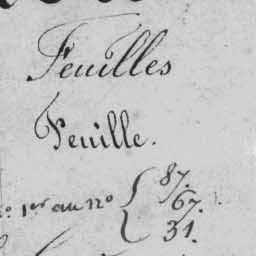 Feuilles
Feuille.
1er au no { 87.
67.
31.